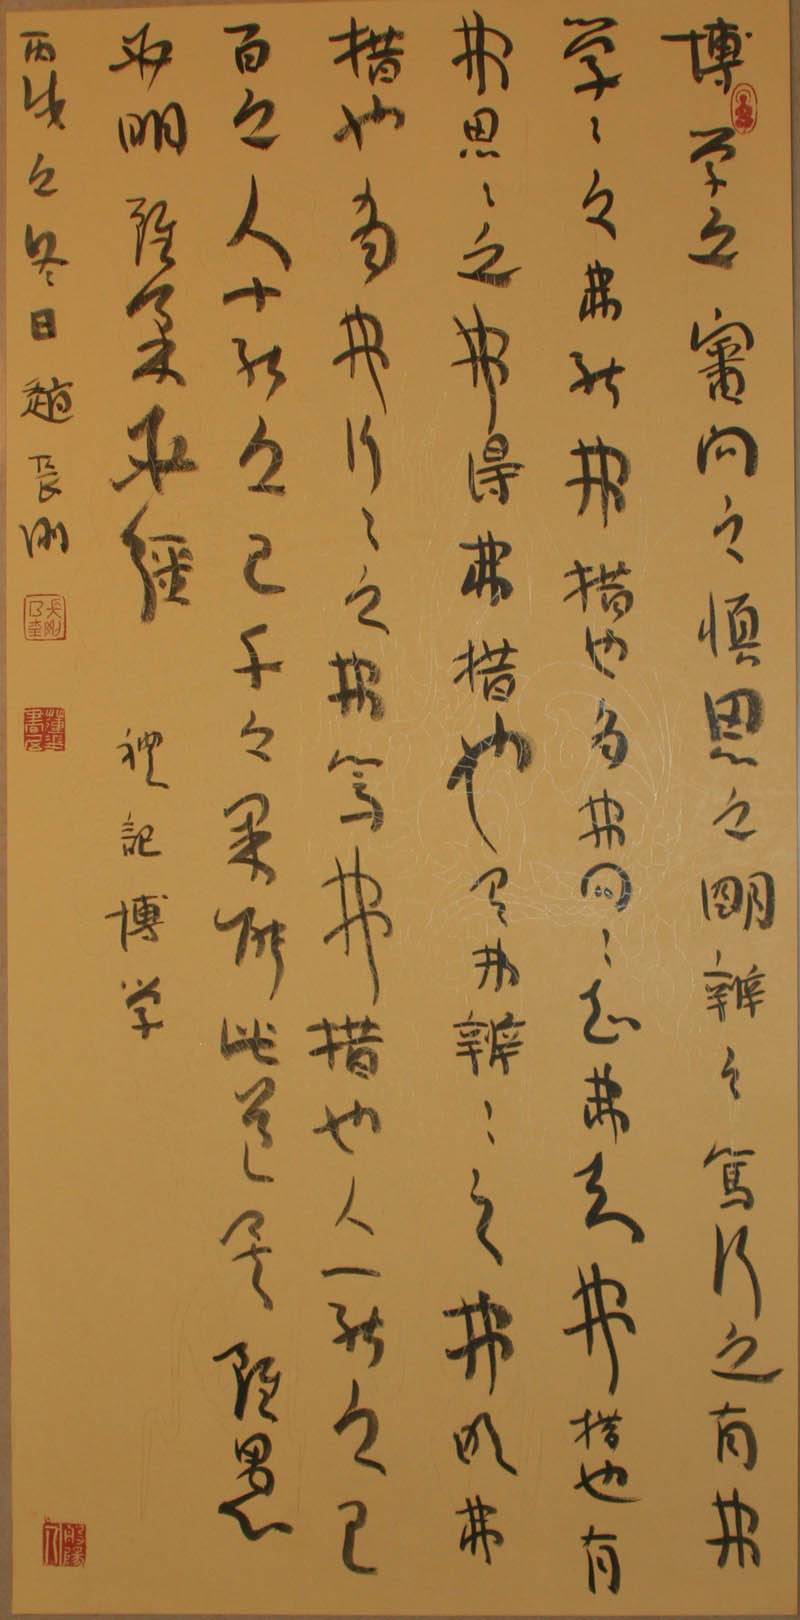 博学之審问之慎思之明辨之篤行之有弗
学〻之弗能弗措也有弗问〻之弗知弗措也有
弗思〻之弗得弗措也有弗辨〻之弗明弗
措也有弗行〻之弗篤弗措也人一能之己
百之人十能之己千之果能此道矣雖愚
必明雖柔必強 禮記博学
丙戌之冬日趙長刚